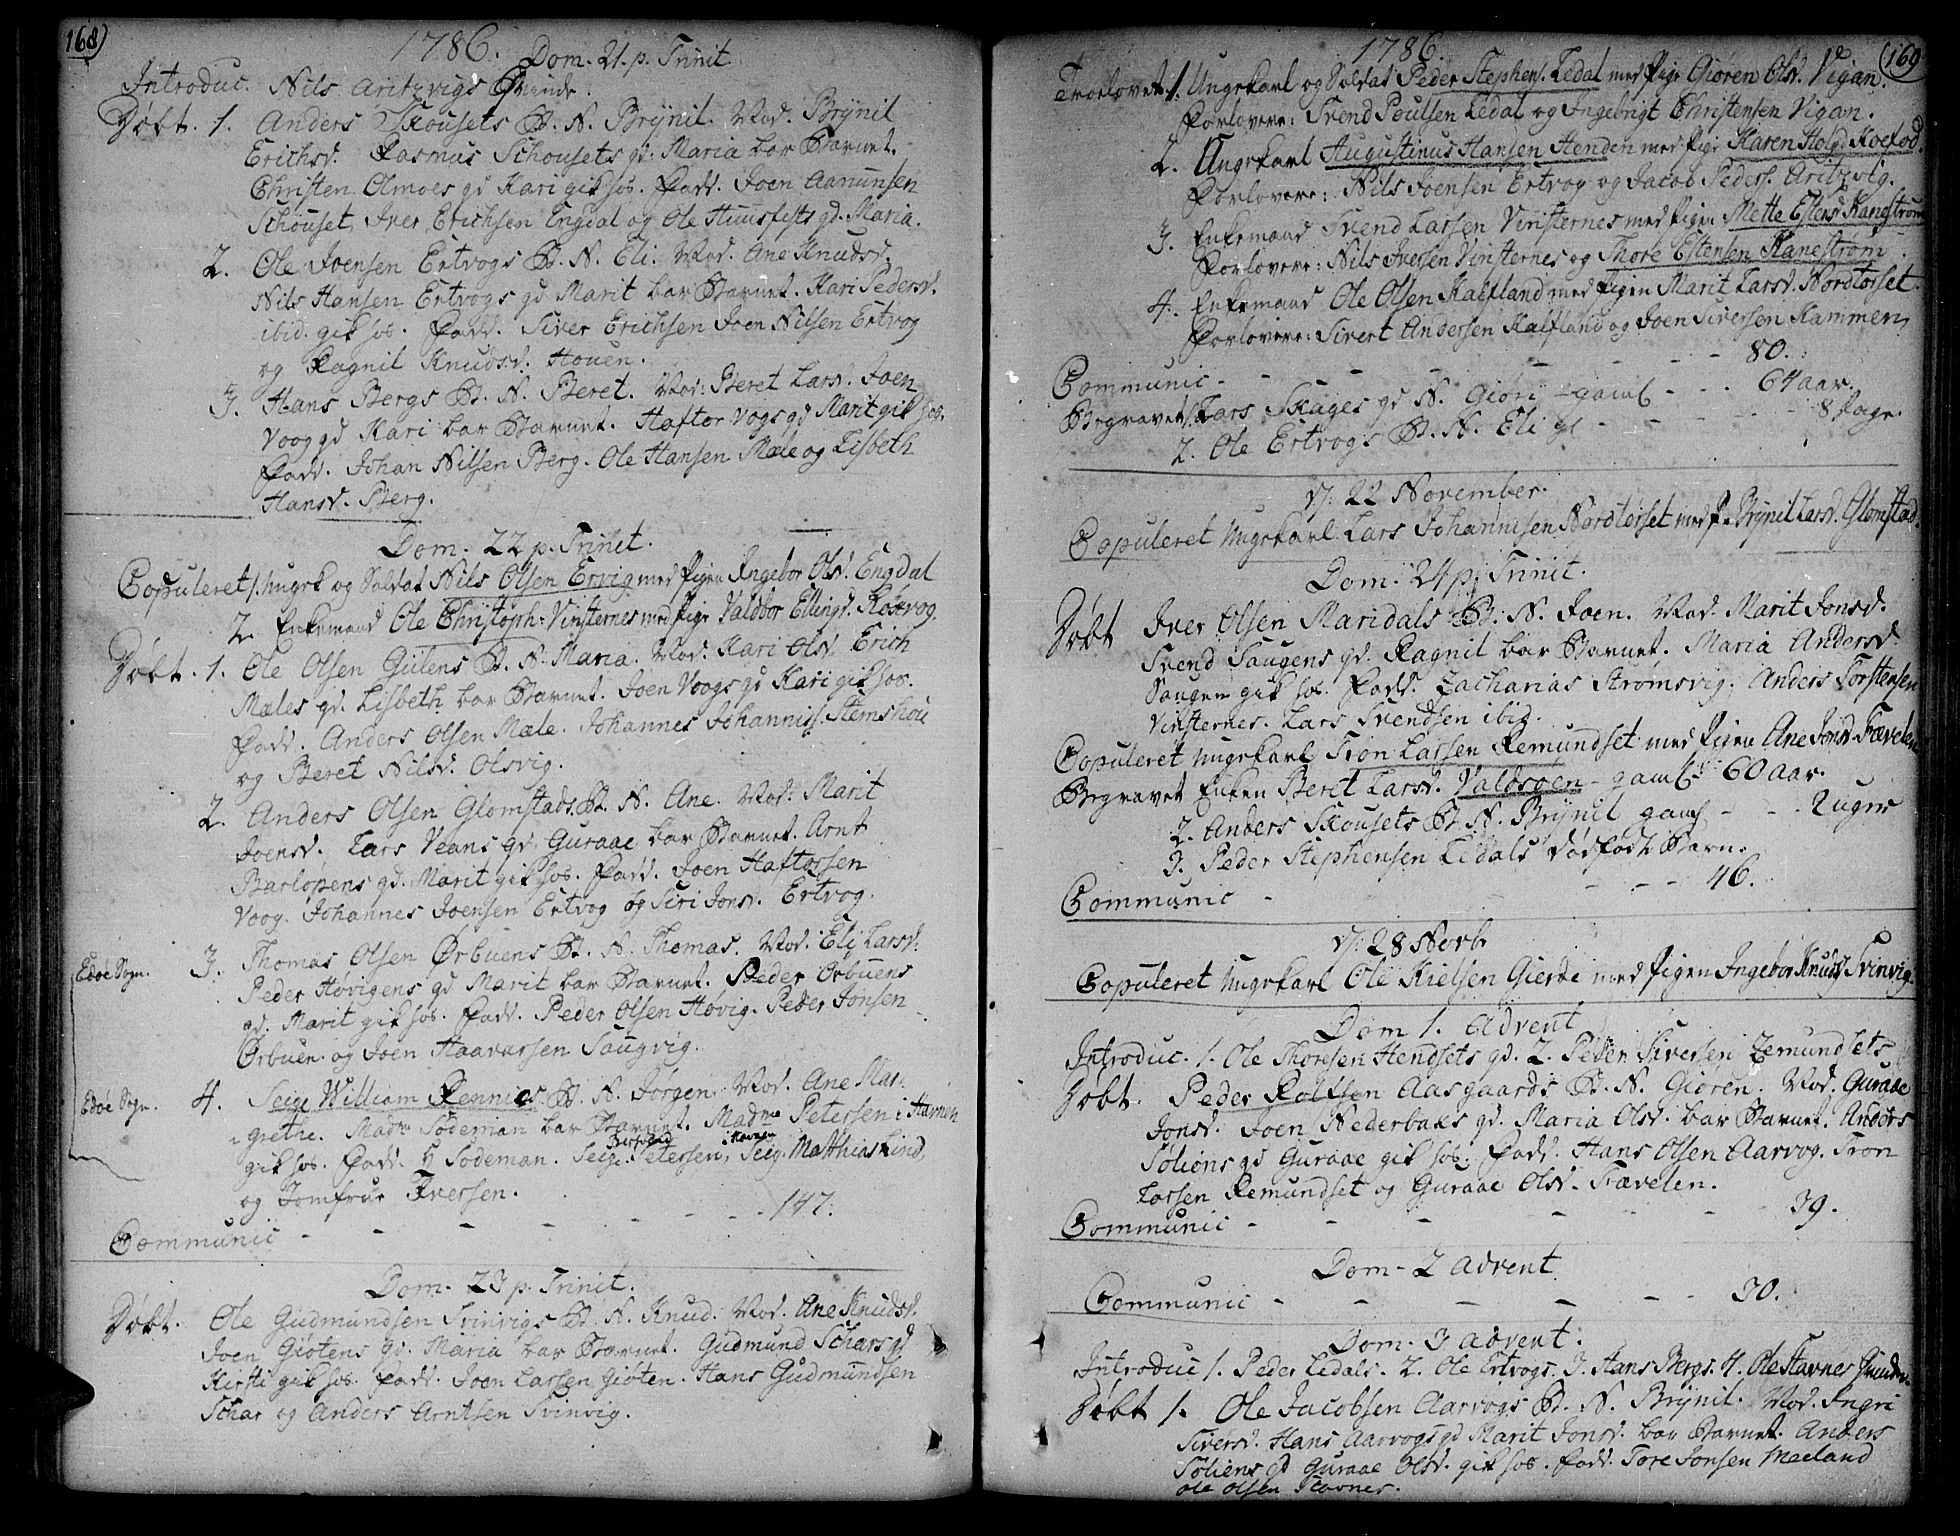 168)
1786. Dom. 21. p. Trinit.
Introduc. Nils Aritzvigs Qvinde.
Døbt. 1. Anders Skousets B. N. Brÿnil. Mod. Brÿnil
Erichsd. Rasmus Schousets gd. Maria bar Barnet.
Christen Olmoes gd Kari gik hos. Fadd. Joen Aanunsen
Schouset, Iver Erichsen Engdal og Ole Huusfests gd. Maria.
2. Ole Joensen Ertvogs B. N. Eli. Mod. Ane Knudsd.
Nils Hansen Ertvogs gd Marit bar Barnet. Kari Pedersd.
ibid. gik hos. Fadd. Siver Erichsen Joen Nilsen Ertvog
og Ragnil Knudsd. Houen.
3. Hans Bergs B. N. Beret. Mod: Beret Larsd. Joen
Voog gd Kari bar Barnet. Haftor Vogs gd Marit gik hos.
Fadd. Johan Nilsen Berg. Ole Hansen Mæle og Lisbeth
Hansd. Berg.
Dom. 22 p. Trinit.
Copuleret 1. Ungk og Soldat Nils Olsen Ervig med Pigen Ingebor Olsd. Engdal
2. Enkemand Ole Christoph: Vinsternes med Pige Valdbor Ellingsd. Kørvog.
Døbt. 1. Ole Olsen Giilens B. N. Maria. Mod: Kari Olsd. Erich
Mæles gd. Lisbeth bar Barnet. Joen Voogs gd Kari gik hos.
Fadd. Anders Olsen Mæle. Johannes Johannis. Stemshou
og Beret Nilsd. Olsvig.
2. Anders Olsen Glomstads B. N. Ane. Mod: Marit
Joensd. Lars Veans gd. Guraae bar Barnet. Arnt
Barlopens gd. Marit gik hos. Fadd. Joen Haftorsen
Voog. Johannes Joensen Ertvog og Siri Jonsd. Ertvog.
Edøe Sogn. 3. Thomas Olsen Ørbuens B. N. Thomas. Mod. Eli Larsd.
Peder Høvigens gd Marit bar Barnet. Peder Ørbuens
gd. Marit gik hos. Fadd. Peder Olsen Høvig. Peder Jonsen
Ørbuen og Joen Haavarsen Saugvig.
Edøe Sogn. 4. Seigr William Rennies B. N. Jørgen. Mod. Ane Mar-
grethe. Madme Sødeman bar Barnet. Madme Petersen i Havnen
gik hos. Fadd. H Sodeman. Seigr. Petersen, i Havnen Seig. Matthias Lind,
og Jomfrue Iversen.
Communic - - - - - - 147.
Dom. 23 p. Trinit.
Døbt. Ole Gudmundsen Svinvigs B. N. Knud. Mod. Ane Knudsd.
Joen Giøtens gd. Maria bar Barnet. Gudmund Schars gd
Kirsti gik hos. Fadd. Joen Larsen Giøten. Hans Gudmundsen
Schar og Anders Arntsen Svinvig.
1786. (169
Troelovet. 1. Ungekarl og Soldat Peder Stephens. Ledal med Pige Giøren Olsd. Vigan.
Forlovere: Svend Poulsen Ledal og Ingebrigt Christensen Vigan.
2. Ungekarl Augustinus Hansen Henden med Pige Karen Holgd Koefod.
Forlovere: Nils Joensen Ertvog og Jacob Peders. Aritzvig.
3. Enkemand Svend Larsen Vinsternes med Pigen Mette Estensd Kanestrøm
Forlovere: Nils Iversen Vinsternes og Thore Estensen Kanestrøm.
4. Enkemand Ole Olsen Kalfland med Pigen Marit Larsd. Nordtørset.
Forlovere: Sivert Andersen Kalfland og Joen Siversen Hammen,
Communic - - - - - - 80.
Begravet 1. Lars Skages gd N. Giøri - gaml - - - 64 aar.
2. Ole Ertvogs B. N. Eli gl - - - - - 8 Dage.
D: 22 November.
Copuleret Ungekarl Lars Johannisen Nordtørset med P. Brÿnil Larsd. Glomstad.
Dom. 24 p. Trinit.
Døbt Iver Olsen Maridals B. N. Joen. Mod. Marit Jonsd.
Svend Saugens gd. Ragnil bar Barnet. Maria Andersd.
Saugen gik hos. Fadd. Zacharias Strømsvig. Anders Torstensen
Vinsternes. Lars Svendsen ibid.
Copuleret Ungekarl Tron Larsen Remundset med Pigen Ane Jonsd Fævelen
Begravet Enken Beret Larsd. Valdsøen - gaml 60 aar.
2. Anders Skousets B. N. Brÿnil gaml - - - 2 Uger
3. Peder Stephensen Ledals dødfødt Barn.
Communic - - - - 46.
D: 28 Novb.
Copuleret Ungekarl Ole Kielsen Gierde med Pigen Ingebor Knudsd Svinvig.
Dom 1. Advent
Introduc. 1. Ole Thoresen Hendsets gd. 2. Peder Siversen Remundsets
Døbt. Peder Rolfsen Aasgaards B. N. Giøren. Mod. Guraae
Jonsd. Joen Nederbaks gd. Maria Olsd. bar Barnet. Anders
Søliens gd Guraae gik hos. Fadd. Hans Olsen Aarvog. Tron
Larsen Remundset og Guraae Olsd. Fævelen.
Communic - - - - - - 39.
Dom. 2 Advent
Communic - - - - - - 30.
Dom. 3 Advent.
Introduc 1. Peder Ledals. 2. Ole Ertvogs. 3. Hans Bergs. 4. Ole Stavnes Qvinder.
Døbt 1. Ole Jacobsen Aarvogs B. N. Brÿnil. Mod. Ingri
Siversd. Hans Aarvogs gd Marit Jonsd. bar Barnet. Anders
Søliens gd Guraae Olsd. gik hos. Fadd. Tore Jonsen Meeland
Ole Olsen Stavnes.